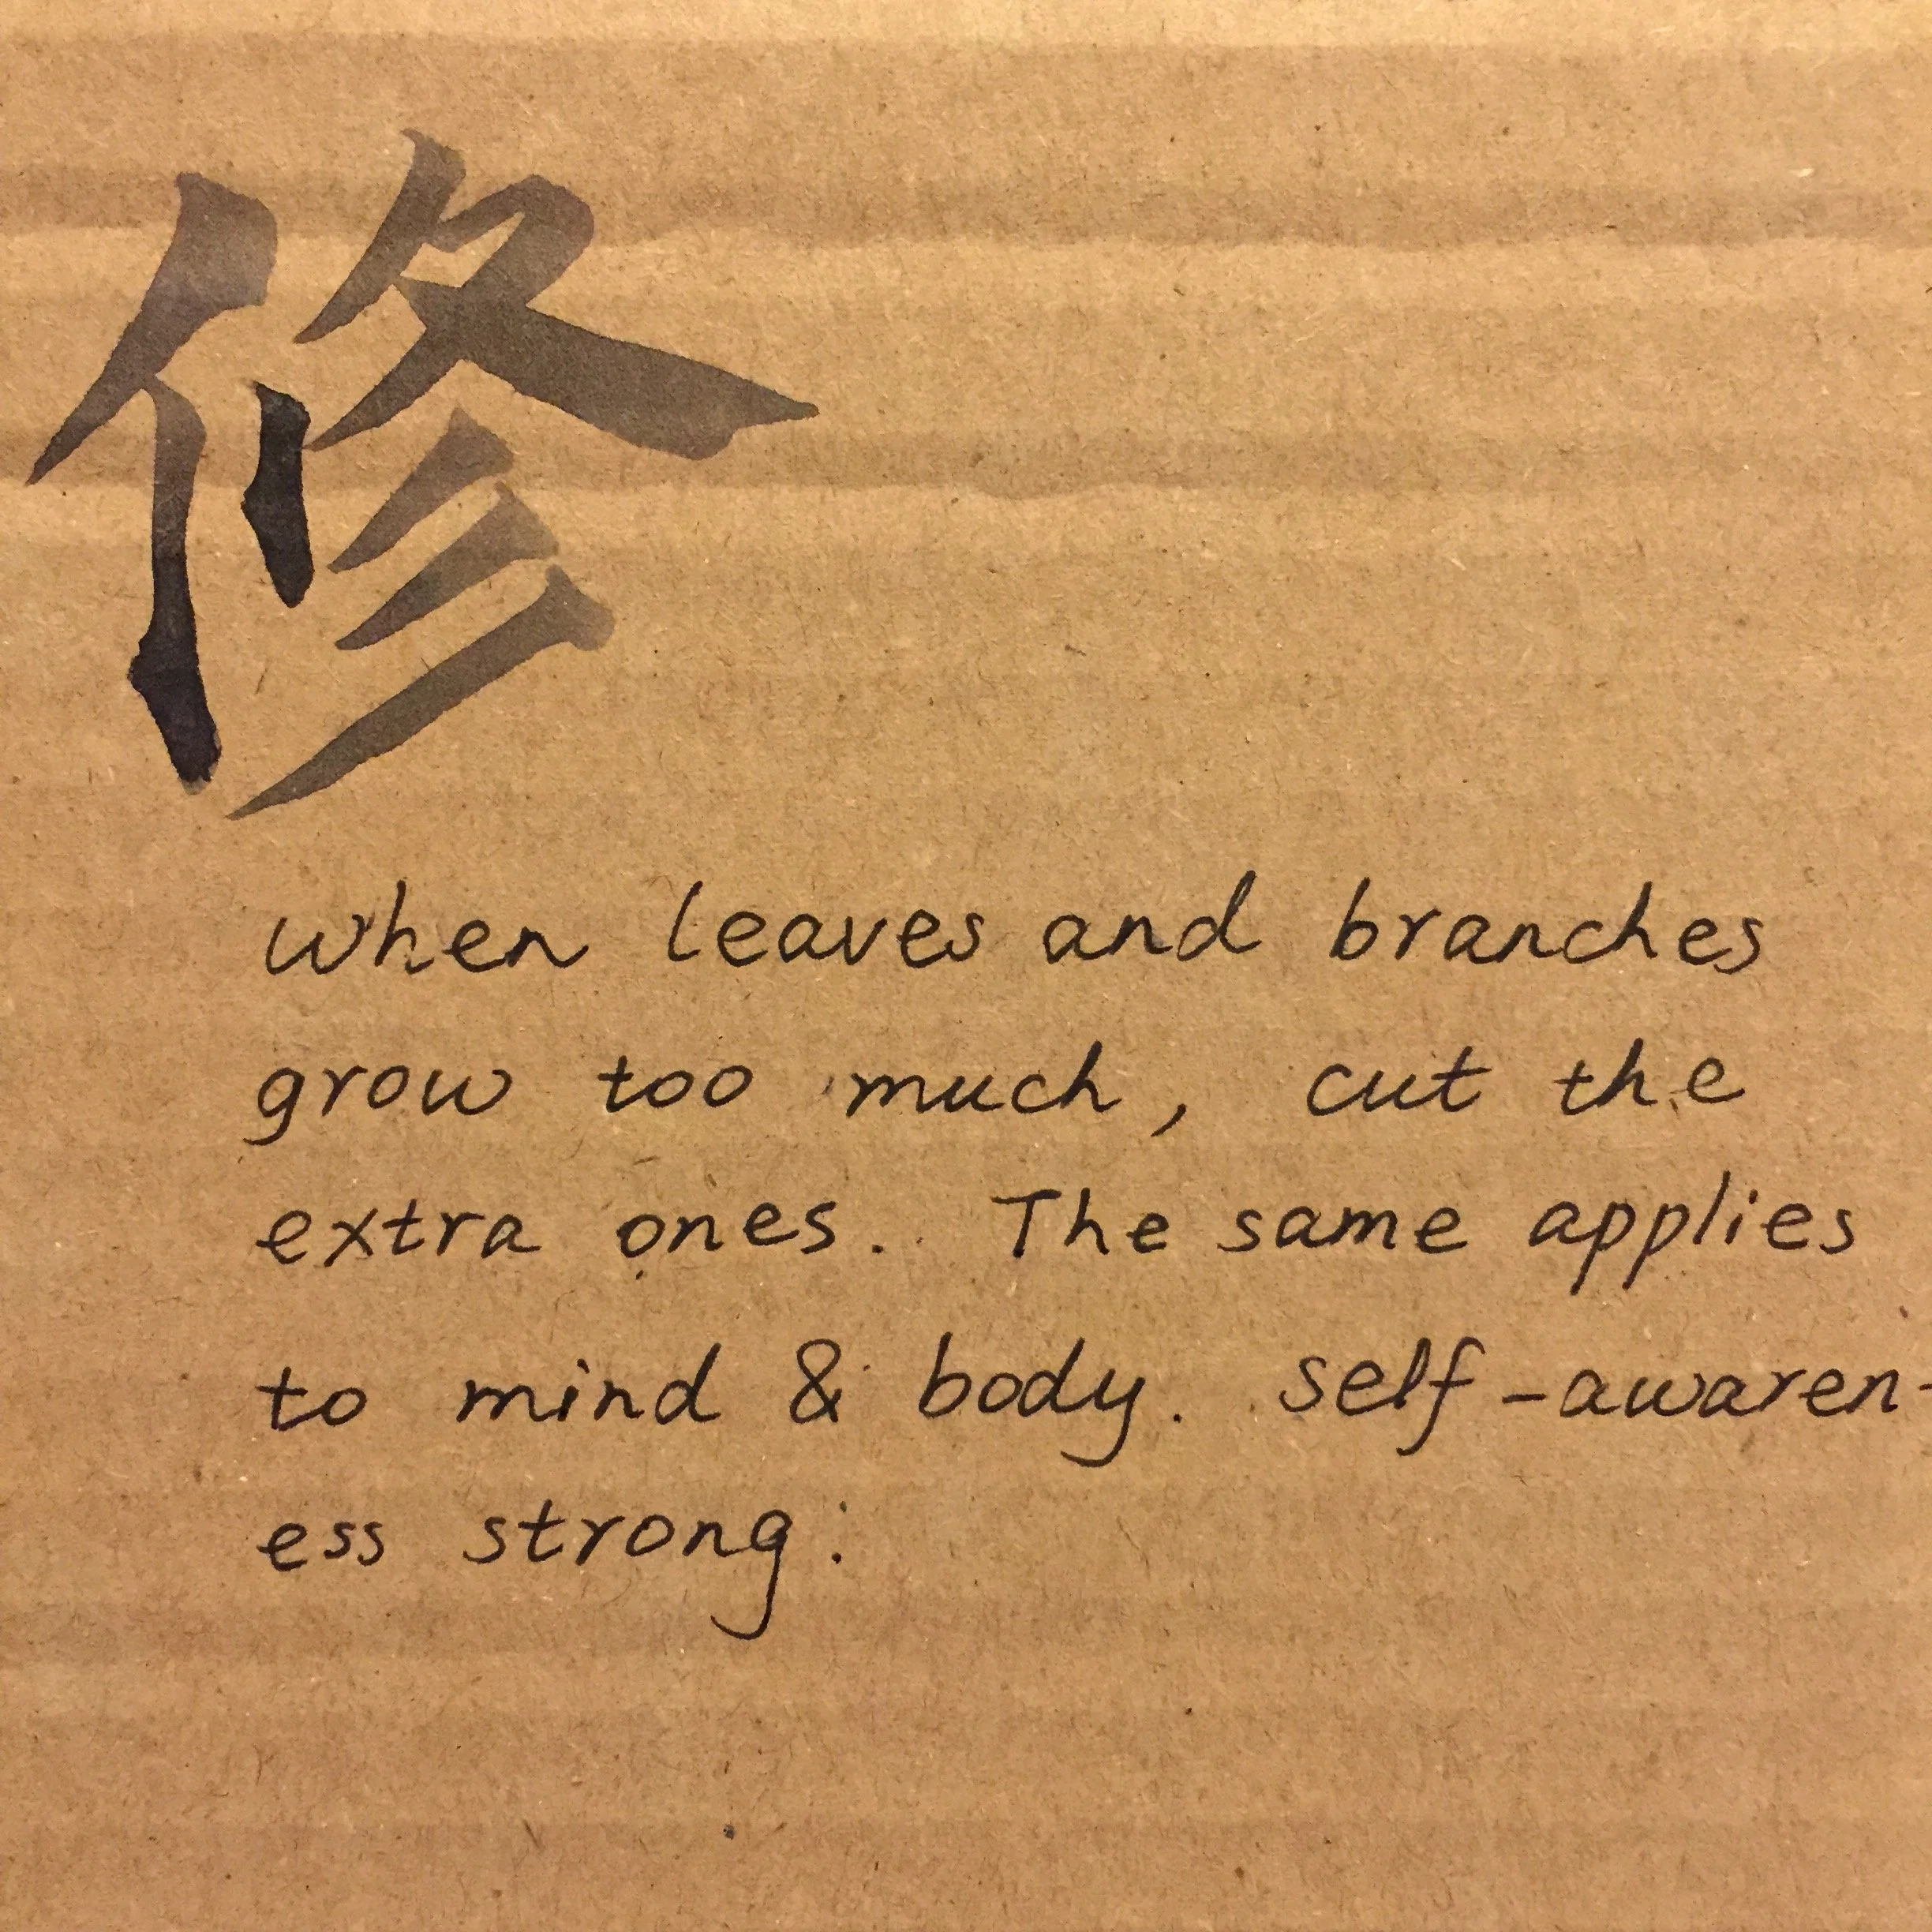 修
when leaves and branches
grow too much, cut the
extra ones. The same applies
to mind & body. self-awaren-
ess strong: